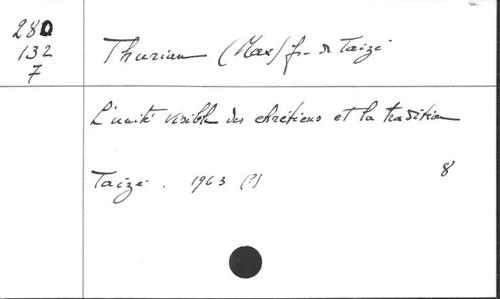 280
132
7
Thurian (Max) fr. de Taizé
L'unité visible des chrétiens et la tradition
Taizé. 1963 (?)
8